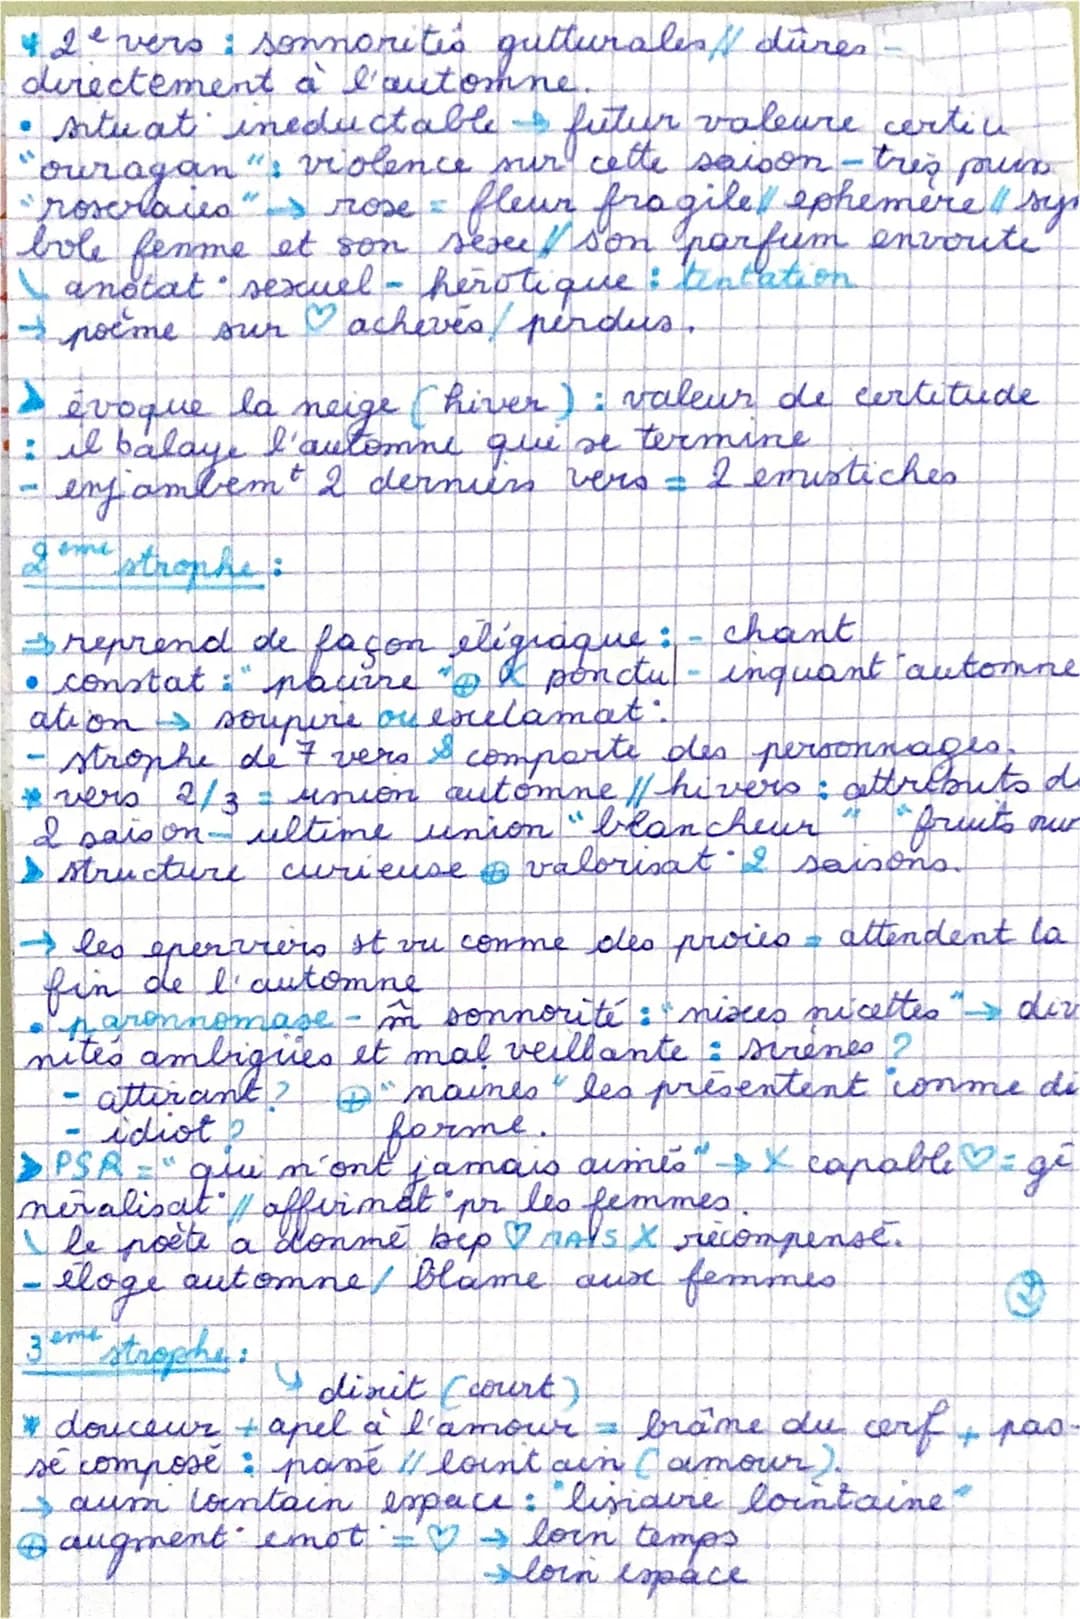 * 2e vers : sonnorités gutturales // dûres -
directement à l'automne.
• situat° ineductable → futur valeure certiu
"ouragan" : violence sur cette saison - très puiss
"roseraies" → rose = fleur fragile // ephemère // sym
bole femme et son sexe // son parfum envoute
↳ anotat° sexuel - hérotique : tentation
→ poème sur ♡ achevés / perdus.
➤ évoque la neige (hiver) : valeur de certitude
: il balaye l'automne qui se termine
- enjambemt 2 derniers vers = 2 emistiches
2ème strophe :
⇒ reprend de façon élégiaque : - chant
• constat : "pauvre" ⊕ X ponctu - inquant "automne
ation → soupire ou exclamat°
- strophe de 7 vers & comporte des personnages.
* vers 2/3 = union automne // hivers : attributs de
2 saison - ultime union "blancheur" "fruits mur
➤ structure curieuse ⊕ valorisat° 2 saisons.
→ les eperviers st vu comme des proies = attendent la
fin de l'automne
• paronnomase - m̂ sonnorité : "nixes nicettes" → divi
nités ambigües et mal veillante : sirènes ?
- attirant ? ⊕ "naines" les présentent comme di
- idiot ? forme.
➤ PSR = "qui n'ont jamais aimés" → X capable ♡ = gé
néralisat° // affirmat° pr les femmes.
↳ le poète a donné bcp ♡ MAIS X récompensé.
- éloge automne / blame aux femmes
2
3ème strophe :
↳ dixit (court)
* douceur + apel à l'amour = brâme du cerf + pas-
sé composé : passé // lointain (amour).
→ aussi lointain espace : "lisiaire lointaine"
⊕ augment° emot° = ♡ → loin temps
→ loin espace